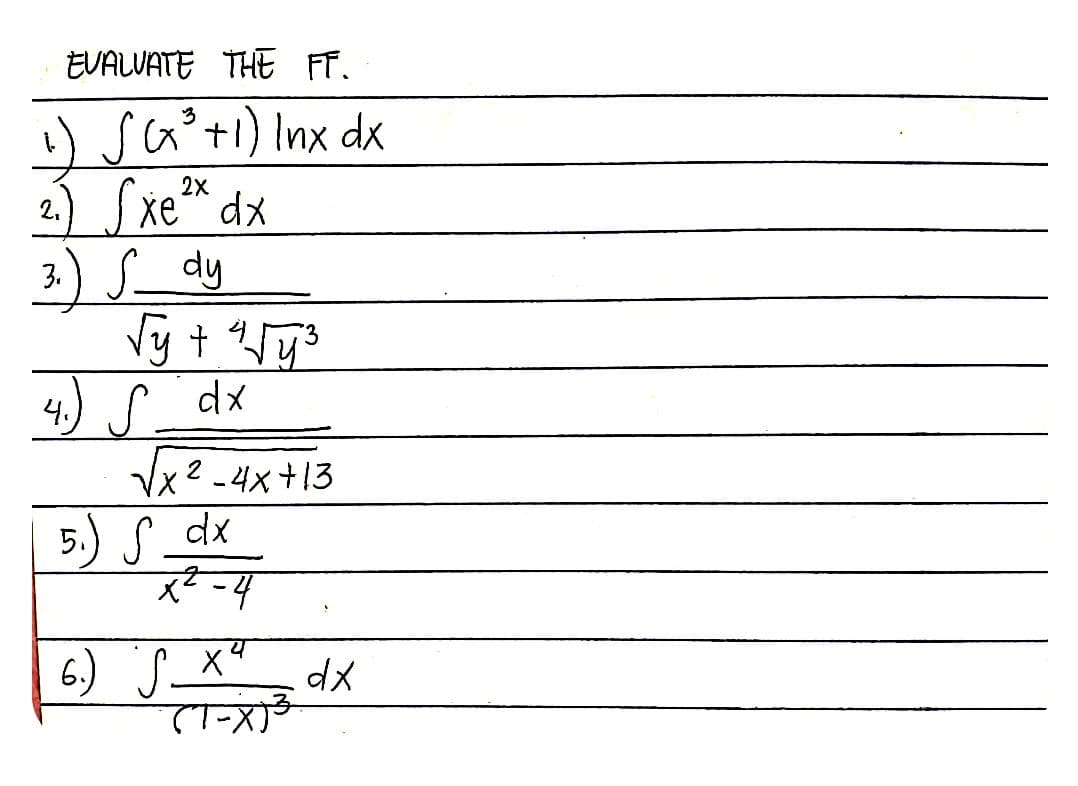 EVALUATE THE FF.
1.) ∫(x³+1) lnx dx
2.) ∫xe²ˣ dx
3.) ∫ dy
√y + ⁴√y³
4.) ∫ dx
√x²-4x+13
5.) ∫ dx
x²-4
6.) ∫ x⁴ dx
(1-x)³